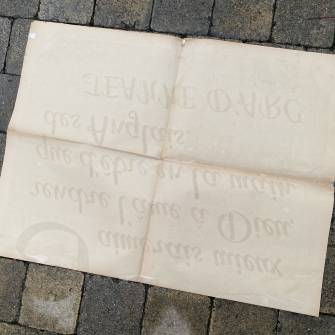 J'aimerais mieux
rendre l'âme à Dieu,
que d'être en la main
des Anglais
JEANNE D'ARC